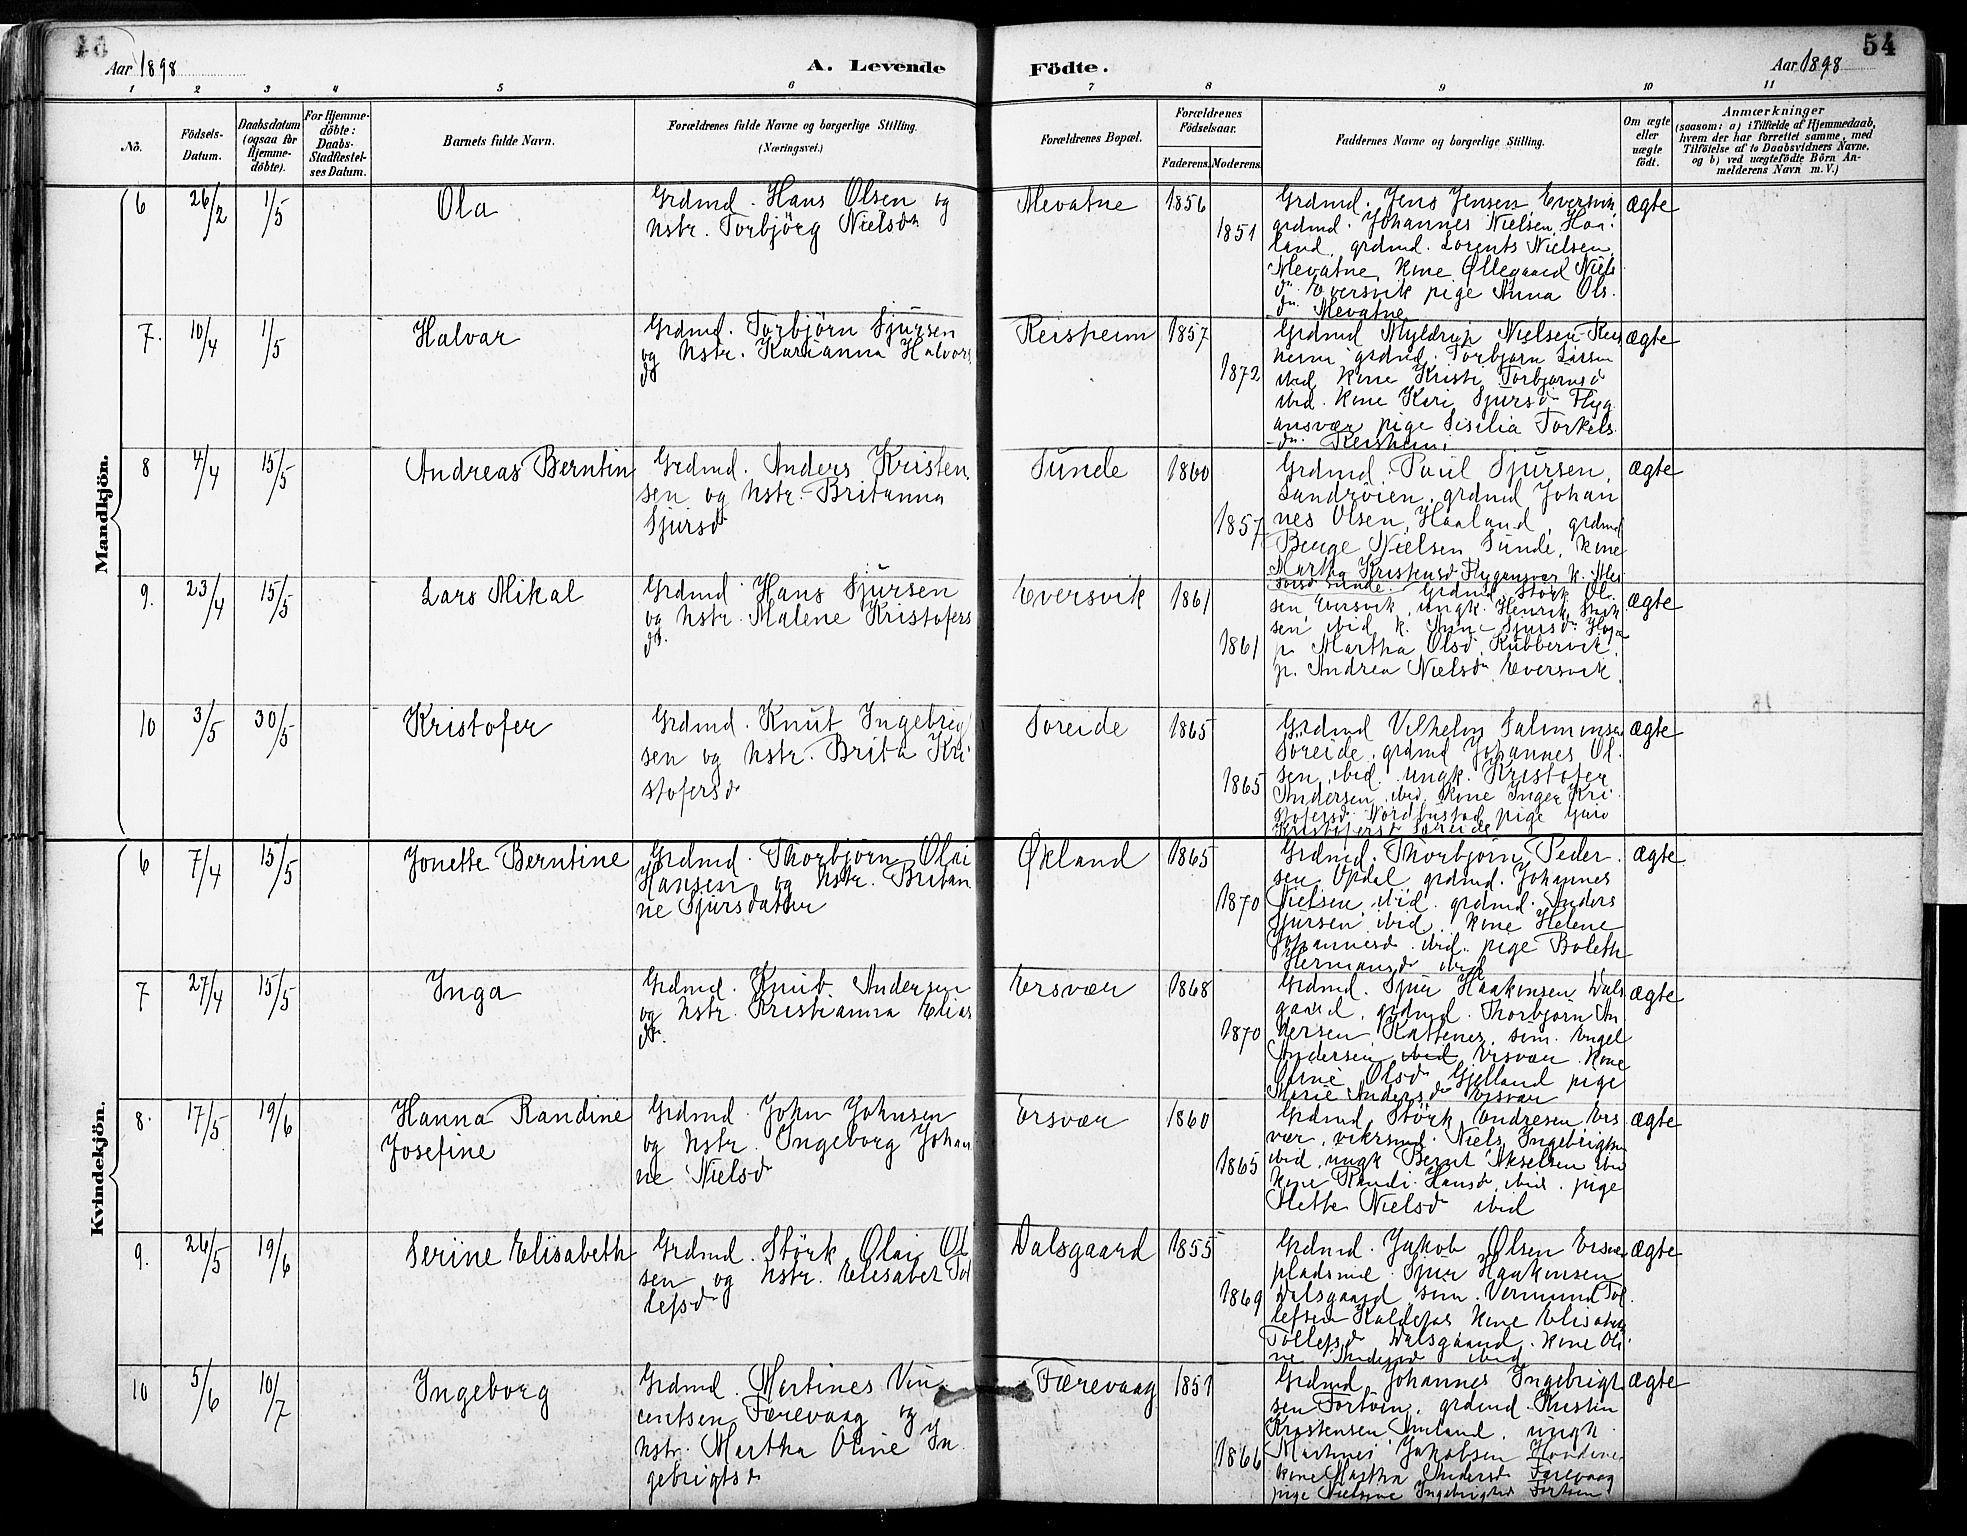 Aar 1898
A. Levende
Födte.
Aar 1898
54
1 2 3 4 5 6 7 8 9 10 11
No.
Födsels-
Datum.
Daabsdatum
(ogsaa for
Hjemme-
döbte).
For Hjemme-
döbte:
Daabs-
Stadfæstel-
ses Datum.
Barnets fulde Navn.
Forældrenes fulde Navne og borgerlige Stilling.
(Næringsvei.)
Forældrenes Bopæl.
Forældrenes
Födselsaar.
Faderens. Moderens.
Faddernes Navne og borgerlige Stilling.
Om ægte
eller
uægte
födt.
Anmærkninger
(saasom: a) i Tilfælde af Hjemmedaab,
hvem der har forrettet samme, med
Tilföielse af to Daabsvidners Navne.
og b) ved uægtefödte Börn An-
melderens Navn m. V.)
Mandkjön.
6 26/2 1/5 Ola
Grdmd. Hans Olsen og
hstr. Torbjörg Nielsdr
Mevatne 1856
1851
Grdmd. Jens Jensen Eversvik
grdmd. Johannes Nielsen, Haa-
land, grdmd. Lorents Nielsen
Mevatne, kone Øllegaard Niels
dr. Eversvik pige Anna Ols.
dr. Mevatne
ægte
7. 10/4 1/5 Halvar
Grdmd. Torbjörn Sjursen
og hstr. Karianna Halvors
dr
Reisheim 1857
1872
Grdmd Myldrup Nielsen Reis
heim grdmd. Torbjörn Larsen
ibid kone Kristi Torbjörnsd
ibid. kone Kari Sjursdr Flyg
ansvær pige Sisilia Torkels
dr. Reisheim
ægte
8 4/4 15/5 Andreas Berntin
Grdmd. Anders Kristen
sen og hstr. Britanna
Sjursdr
Sunde 1860
1857
Grdmd. Paul Sjursen,
Sandröien, grdmd Johan
nes Olsen, Haaland, grdmd
Benge Nielsen Sunde, kone
Martha Kristensd Flygansvær k.
Sunde
ægte
9. 23/4 15/5 Lars Mikal
Grdmd. Hans Sjursen
og hstr. Malene Kristofers
dr.
Eversvik 1861
1861
Grdmd. Störk Ol.
sen Eversvik, ungk. Henrik
sen ibid k. Sjursdr
p. Martha Olsd. Rubbervik
p. Andrea Nielsdr Eversvik
ægte
10 3/5 30/5 Kristofer
Grdmd. Knut Ingebrigt
sen og hstr. Brita Kri
stofersdr
Söreide 1865
1865
Grdmd Vilhelm Salamonsen
Söreide, grdmd Johannes Ol.
sen ibid. ungk. Kristofer
Andersen ibid. kone Inger Kri
stofersd Nordhustad pige Guro
Kristofersd Söreide
ægte
Kvindekjön.
6 7/4 15/5 Jonette Berntine
Grdmd. Thorbjörn Olai
Hansen og hstr. Britan
ne Sjursdatter
Økland 1865
1870
Grdmd. Thorbjörn Peder.
sen Opdal grdmd. Johannes
Nielsen ibid. grdmd. Anders
Sjursen ibid. kone Helene
Johannesd. ibid. pige Boleth
Hermansdr ibid
ægte
7 27/4 15/5 Inga
Grdmd. Knut Andersen
og hstr. Kristianna Elias
dr.
Ersvær 1868
1870
Grdmd. Sjur Haakonsen Dals
gaard, grdmd. Thorbjörn An
dersen Kattenes, söm. Engel
Andersen ibid Ersvær kone
Oline Olsdr Gjelland pige
Marie Andersdr Ersvær
ægte
8. 17/5 19/6 Hanna Randine
Josefine
Grdmd. John Johnsen
og hstr. Ingeborg Johan
ne Nielsdr
Ersvær 1860
1865
Grdmd. Störk Andresen Ers
vær, Niels Ingebrigtsen
ibid, ungk Bernt Akselsen ibid
kone Randi Hansdr ibid. pige
Nielsdr ibid
ægte
9. 26/5 19/6 Serine Elisabeth
Grdmd. Störk Olai Ol
sen og hstr. Elisabet Tol
lefsdr
Dalsgaard 1855
1869
Grdmd. Jakob Olsen Ersvær
pladsmd. Sjur Haakonsen
Dalsgaard söm. Vermund Tol
lefsen Kaldefos kone Elisabeth
Tollefsdr Dalsgaard. kone Oli
ne ibid
ægte
10 5/6 10/7 Ingeborg
Grdmd. Martines Vin
centsen Færevaag og
hstr. Martha Oline In
gebrigtsdr
Færevaag 1851
1866
Grdmd Johannes Ingebrigt
sen Fortun, grdmd. Kristen
Kristensen ungk
Martines Jakobsen
kone Martha Andersdr Færevaag
pige Nielsine Ingebrigtsd Fortun
ægte